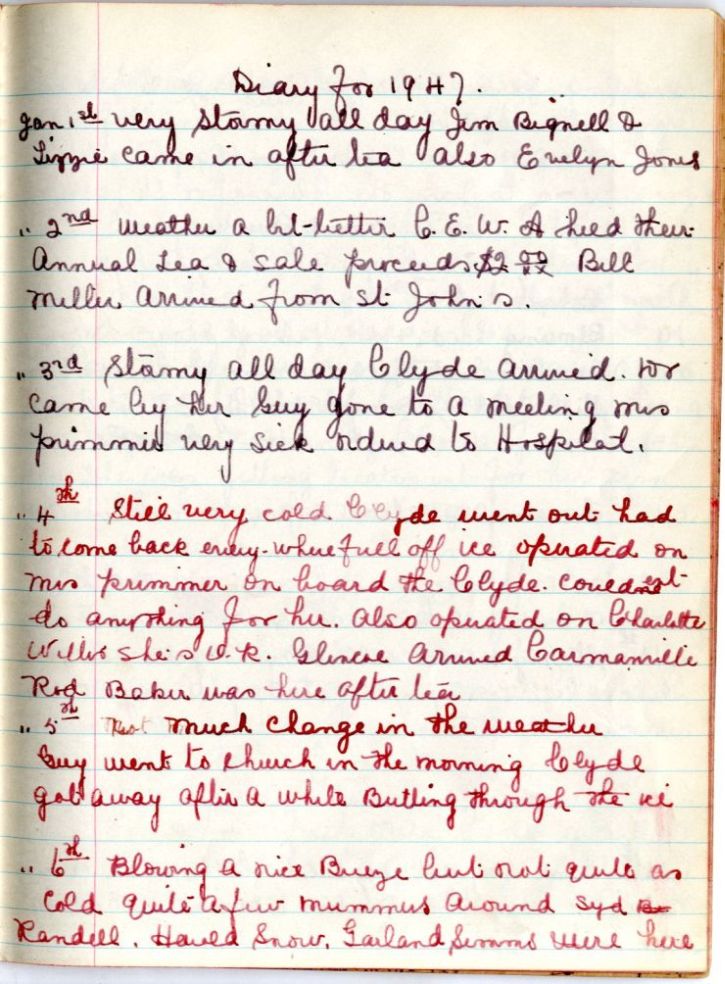 Diary for 1947.
Jan 1st very stormy all day Jim Bignell &
Lizzie came in after tea also Evelyn Jones
" 2nd weather a bit better C.E.W.A held their
Annual Tea & sale proceeds $2 Bill
Miller arrived from St John's.
" 3rd Stormy all day Clyde arrived. Wr
came by her Guy gone to a meeting mrs
primmer very sick ordered to Hospital.
" 4th Still very cold Clyde went out had
to come back every-where full off ice operated on
mrs primmer on board the Clyde. couldn't
do anything for her. Also operated on Charlotte
Willis she's o.k. Glencoe arrived Carmanville
Rod Baker was here after tea
" 5th Not much change in the weather
Guy went to church in the morning Clyde
got away after a while Butting through the ice
" 6th Blowing a nice Breeze but not quite as
cold quite a few mummers around Syd
Randell, Harold Snow, Garland Simms were here